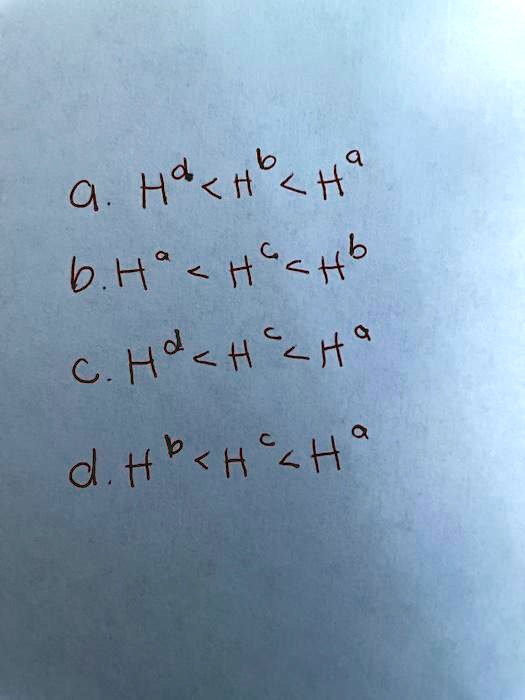 a. Hᵈ < Hᵇ < Hᵃ
b. Hᵃ < Hᶜ < Hᵇ
c. Hᵈ < Hᶜ < Hᵃ
d. Hᵇ < Hᶜ < Hᵃ